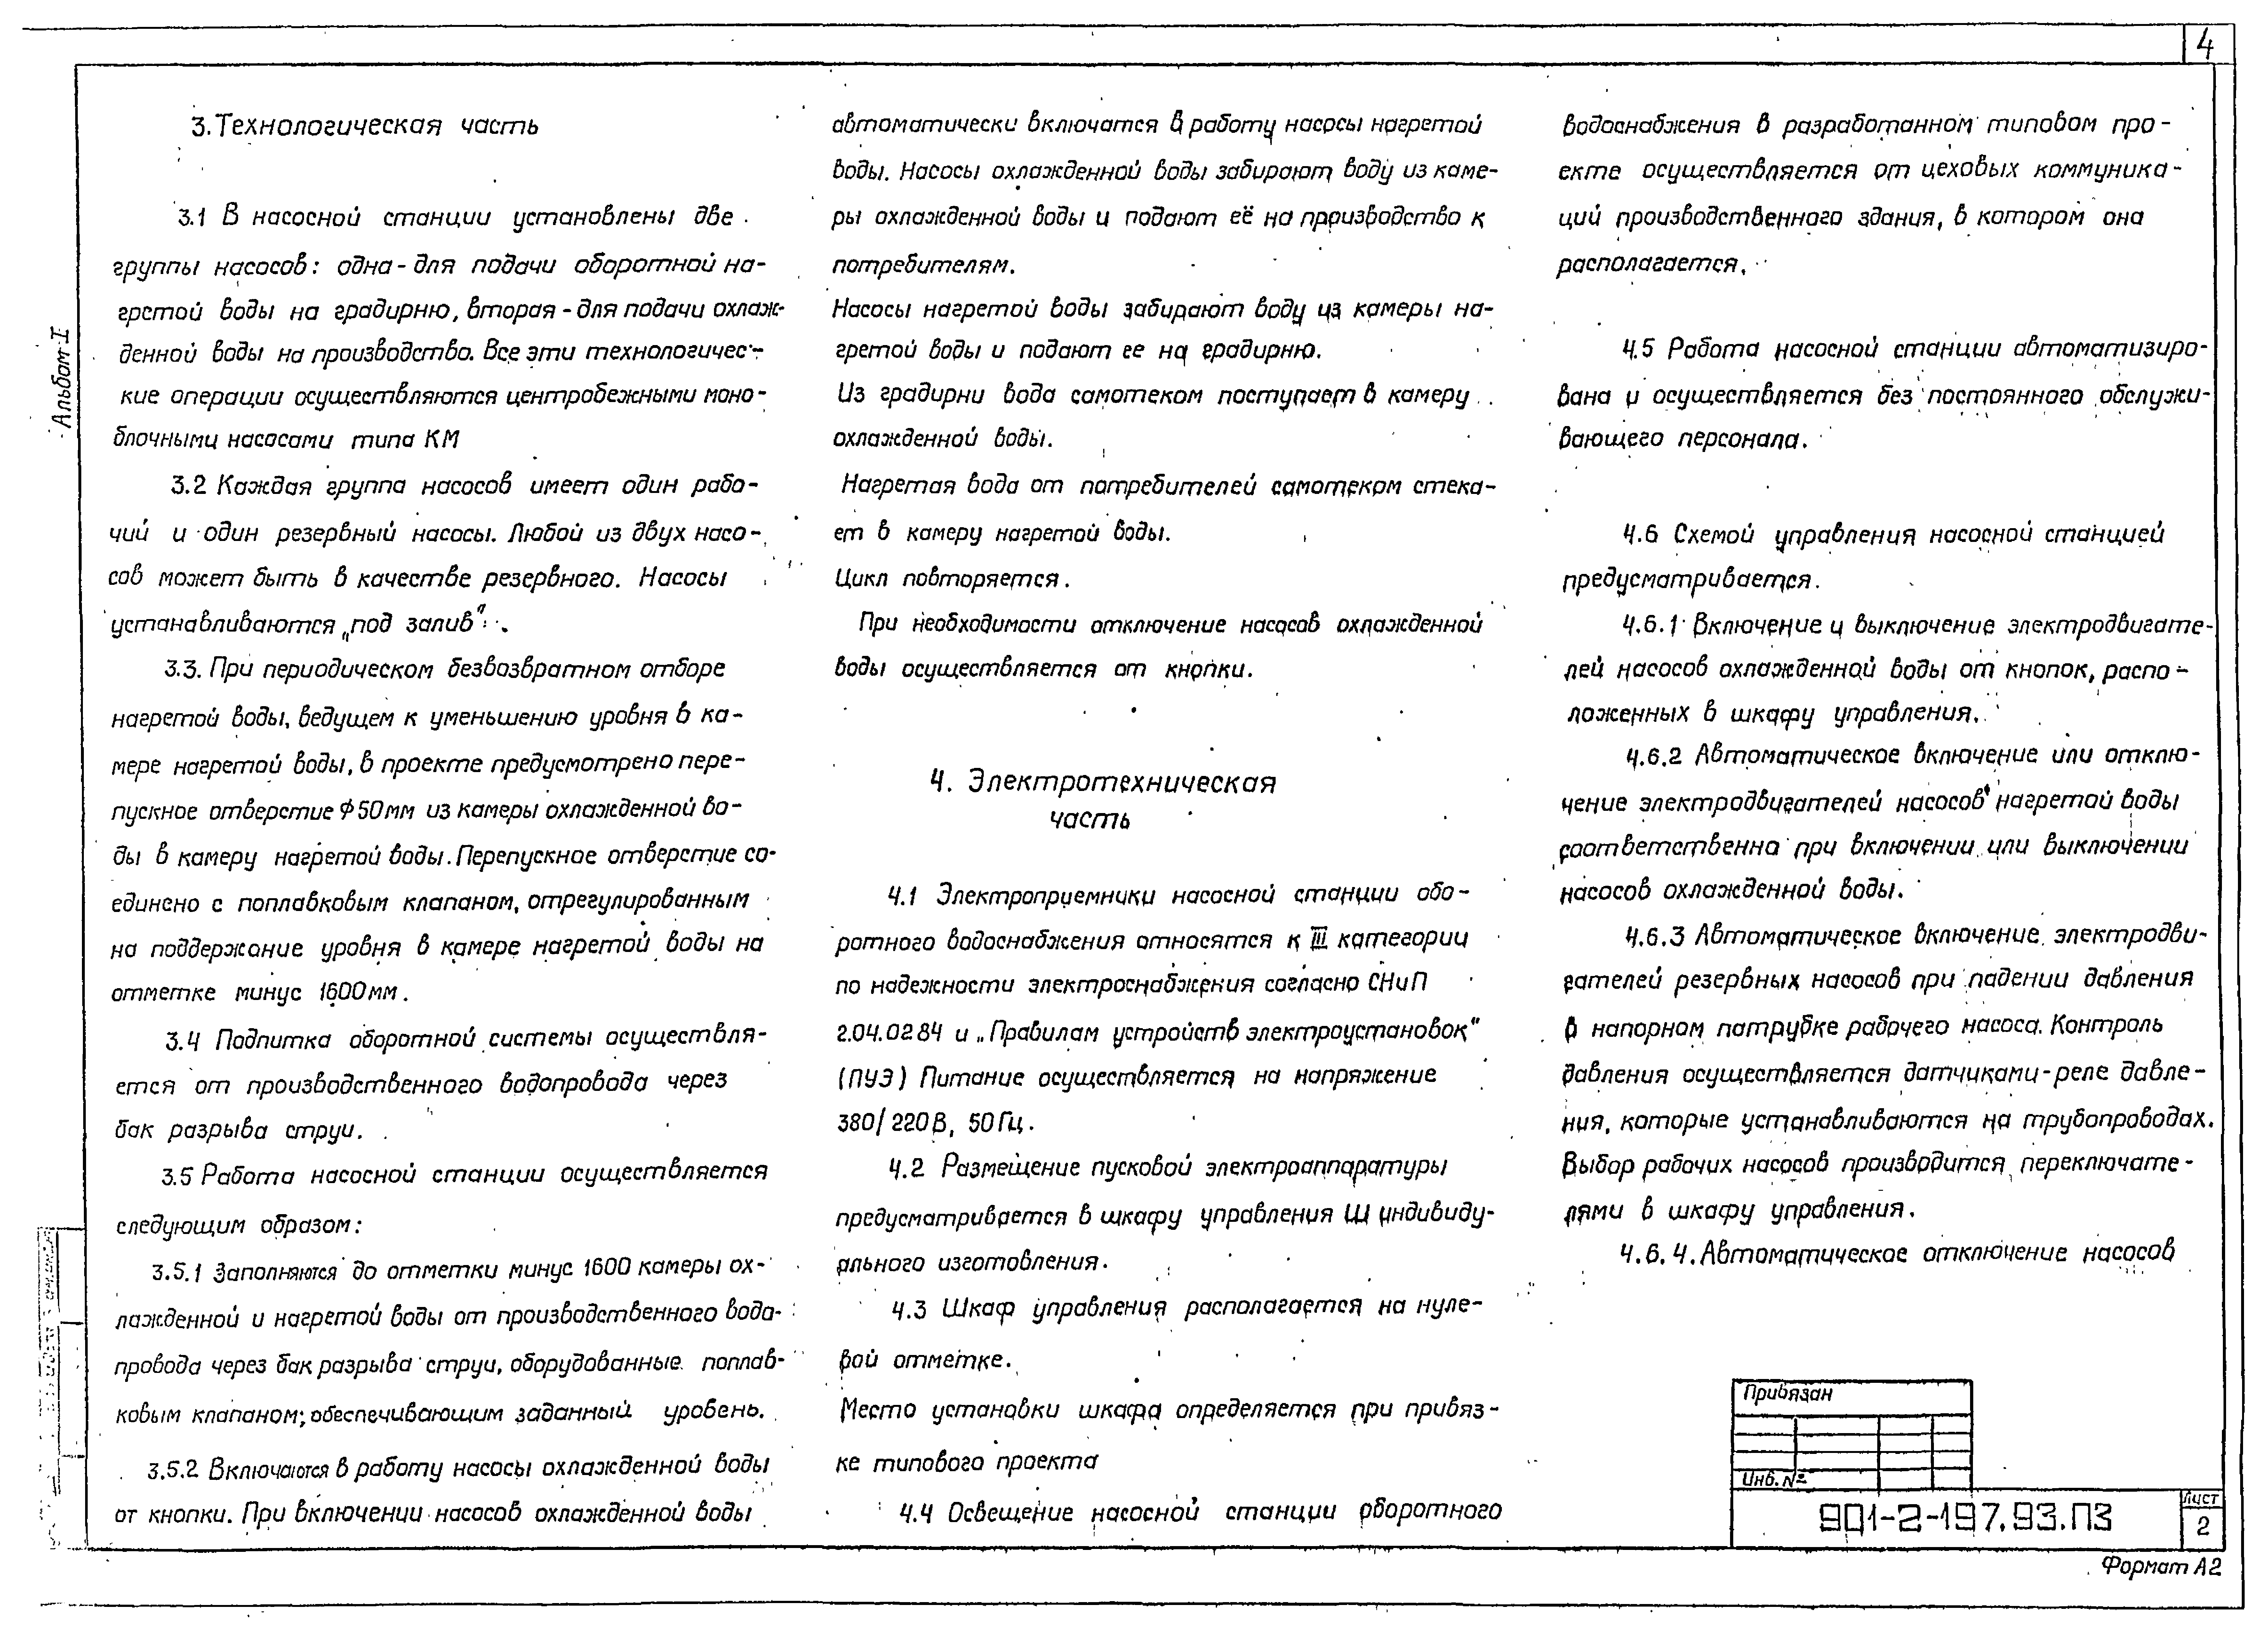 4
Альбом I
3. Технологическая часть
3.1 В насосной станции установлены две
группы насосов: одна - для подачи оборотной на-
гретой воды на градирню, вторая - для подачи охлаж-
денной воды на производство. Все эти технологичес-
кие операции осуществляются центробежными моно-
блочными насосами типа КМ
3.2 Каждая группа насосов имеет один рабо-
чий и один резервный насосы. Любой из двух насо-
сов может быть в качестве резервного. Насосы
устанавливаются „под залив".
3.3. При периодическом безвозвратном отборе
нагретой воды, ведущем к уменьшению уровня в ка-
мере нагретой воды, в проекте предусмотрено пере-
пускное отверстие Ф50мм из камеры охлажденной во-
ды в камеру нагретой воды. Перепускное отверстие со-
единено с поплавковым клапаном, отрегулированным
на поддержание уровня в камере нагретой воды на
отметке минус 1600мм.
3.4 Подпитка оборотной системы осуществля-
ется от производственного водопровода через
бак разрыва струи.
3.5 Работа насосной станции осуществляется
следующим образом:
3.5.1 Заполняются до отметки минус 1600 камеры ох-
лажденной и нагретой воды от производственного водо-
провода через бак разрыва струи, оборудованные поплав-
ковым клапаном; обеспечивающим заданный уровень.
3.5.2 Включаются в работу насосы охлажденной воды
от кнопки. При включении насосов охлажденной воды
автоматически включатся в работу насосы нагретой
воды. Насосы охлажденной воды забирают воду из каме-
ры охлажденной воды и подают её на производство к
потребителям.
Насосы нагретой воды забирают воду из камеры на-
гретой воды и подают ее на градирню.
Из градирни вода самотеком поступает в камеру
охлажденной воды.
Нагретая вода от потребителей самотеком стека-
ет в камеру нагретой воды.
Цикл повторяется.
При необходимости отключение насосов охлажденной
воды осуществляется от кнопки.
4. Электротехническая
часть
4.1 Электроприемники насосной станции обо-
ротного водоснабжения относятся к III категории
по надежности электроснабжения согласно СНиП
2.04.0284 и „Правилам устройств электроустановок"
(ПУЭ) Питание осуществляется на напряжение
380/220В, 50Гц.
4.2 Размещение пусковой электроаппаратуры
предусматривается в шкафу управления Ш индивиду-
ального изготовления.
4.3 Шкаф управления располагается на нуле-
вой отметке.
Место установки шкафа определяется при привяз-
ке типового проекта
4.4 Освещение насосной станции оборотного
водоснабжения в разработанном типовом про-
екте осуществляется от цеховых коммуника-
ций производственного здания, в котором она
располагается.
4.5 Работа насосной станции автоматизиро-
вана и осуществляется без постоянного обслужи-
вающего персонала.
4.6 Схемой управления насосной станцией
предусматривается.
4.6.1 Включение и выключение электродвигате-
лей насосов охлажденной воды от кнопок, распо-
ложенных в шкафу управления.
4.6.2 Автоматическое включение или отклю-
чение электродвигателей насосов нагретой воды
соответственно при включении или выключении
насосов охлажденной воды.
4.6.3 Автоматическое включение электродви-
гателей резервных насосов при падении давления
в напорном патрубке рабочего насоса. Контроль
давления осуществляется датчиками-реле давле-
ния, которые устанавливаются на трубопроводах.
Выбор рабочих насосов производится переключате-
лями в шкафу управления.
4.6.4. Автоматическое отключение насосов
Привязан
Инв. №
901-2-197.93.ПЗ
Лист
2
Формат А2